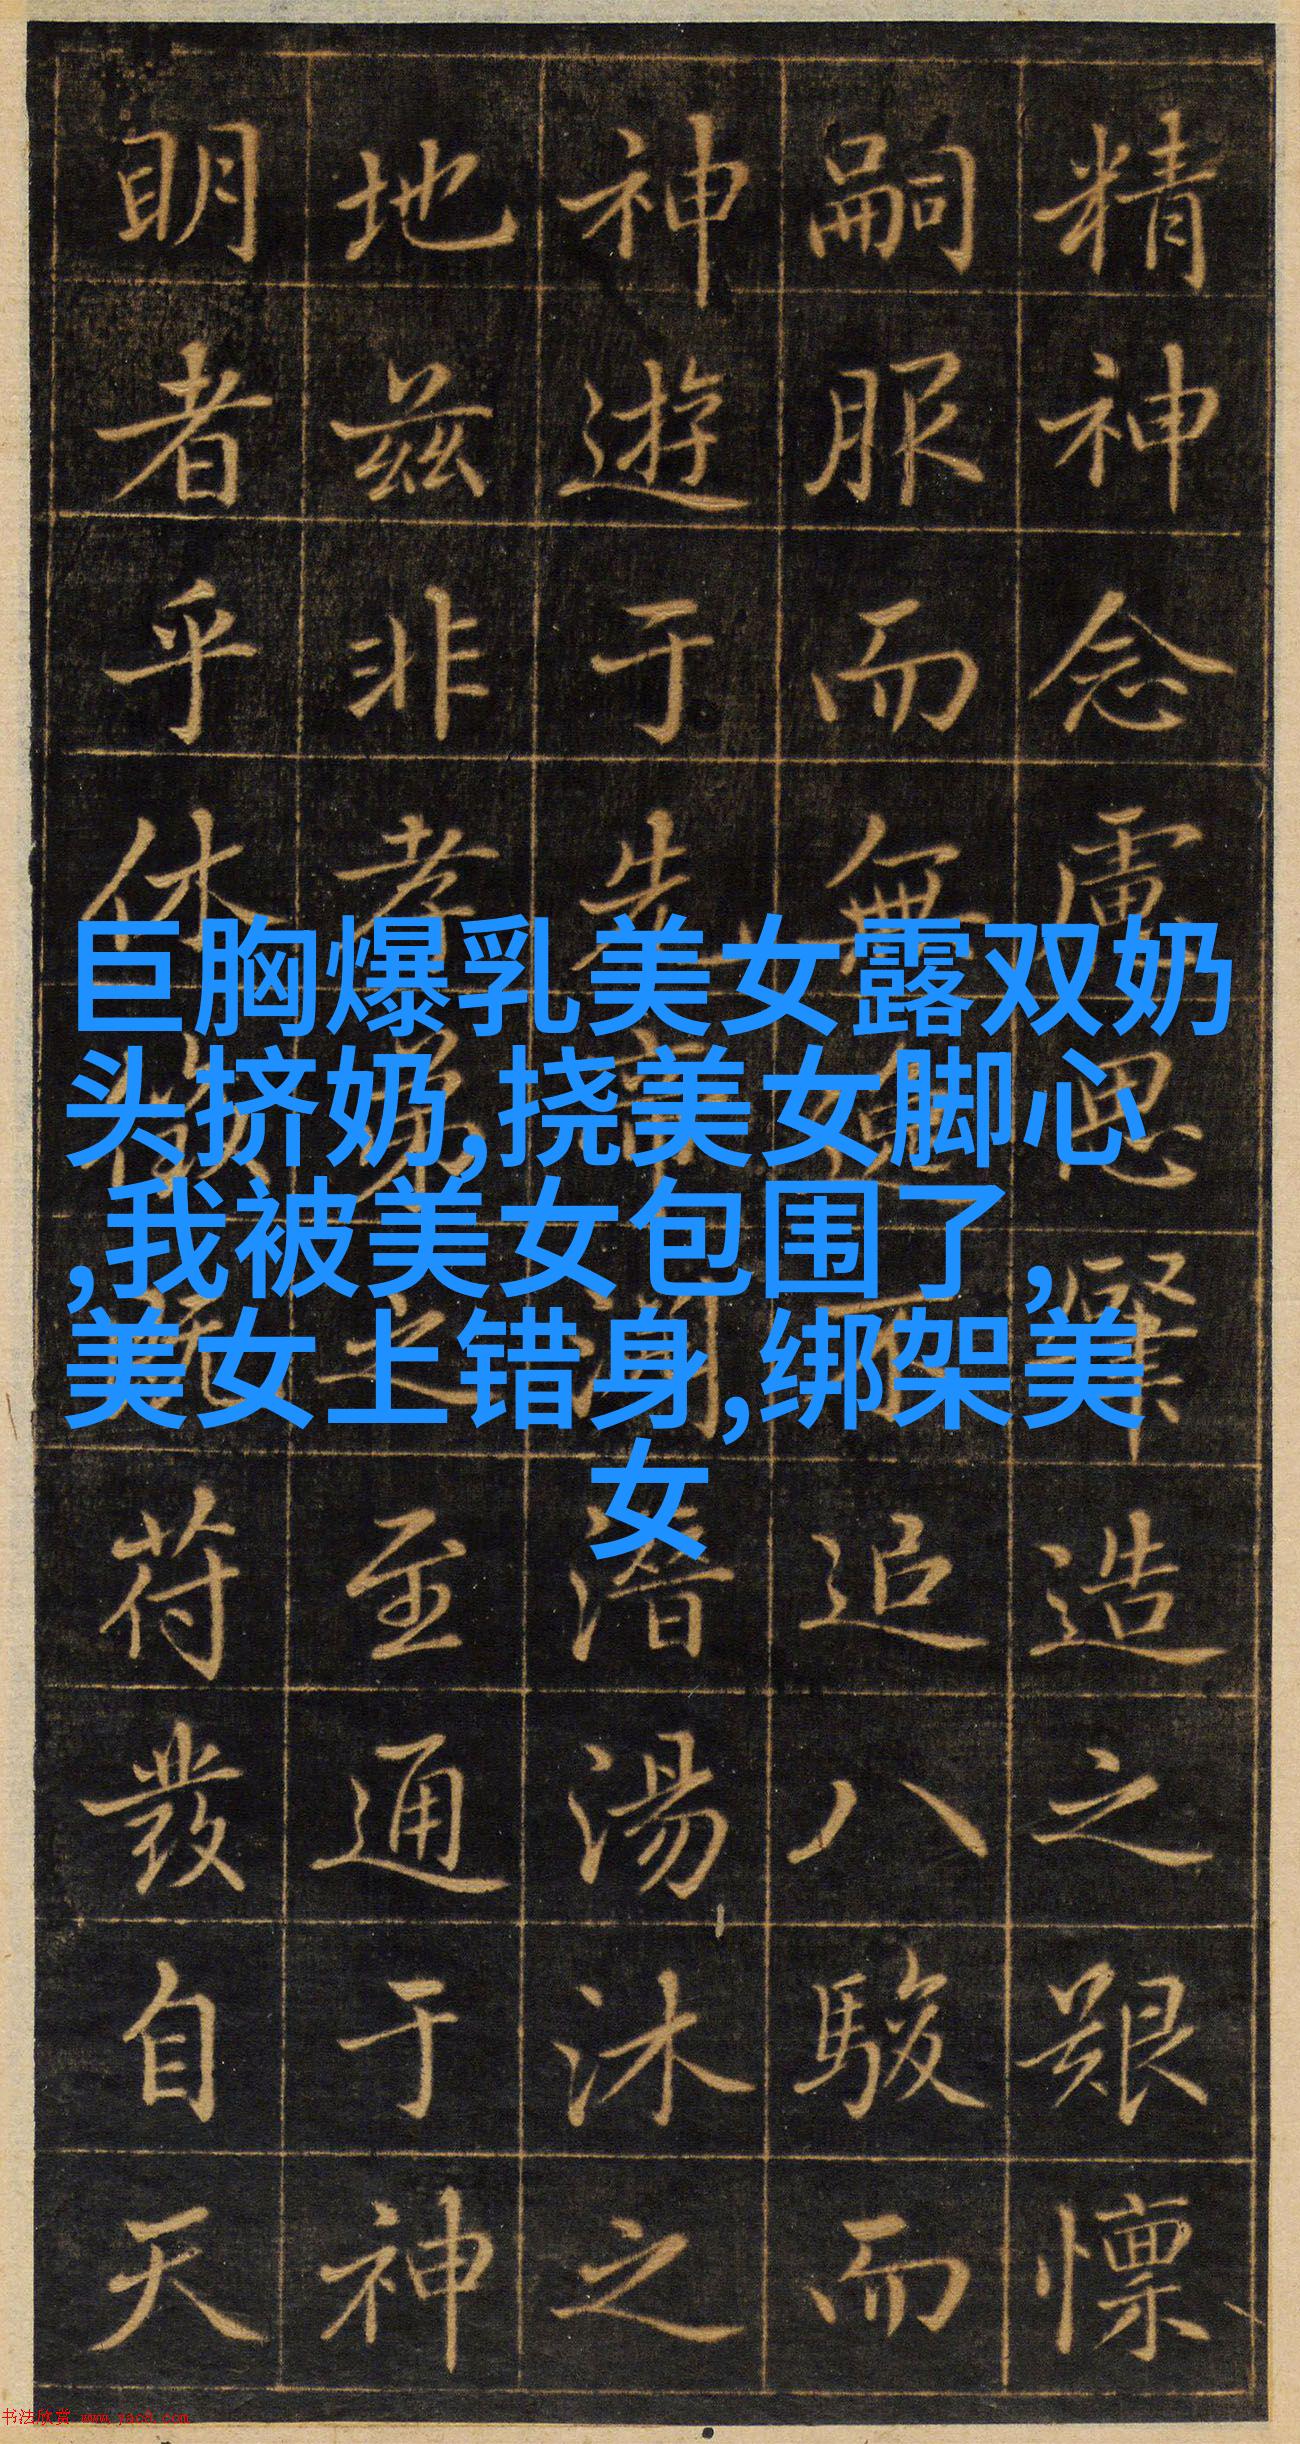 精神念慮
思
造之艱懍
嗣服而無
追八駿而
神遊于先
潜湯沐之
地兹非孝
之至通于神
明者乎休
苻發自天
巨胸爆乳美女露双奶
头挤奶,挠美女脚心
,我被美女包围了,
美女上错身,绑架美
女
书法欣赏 www.yac8.com